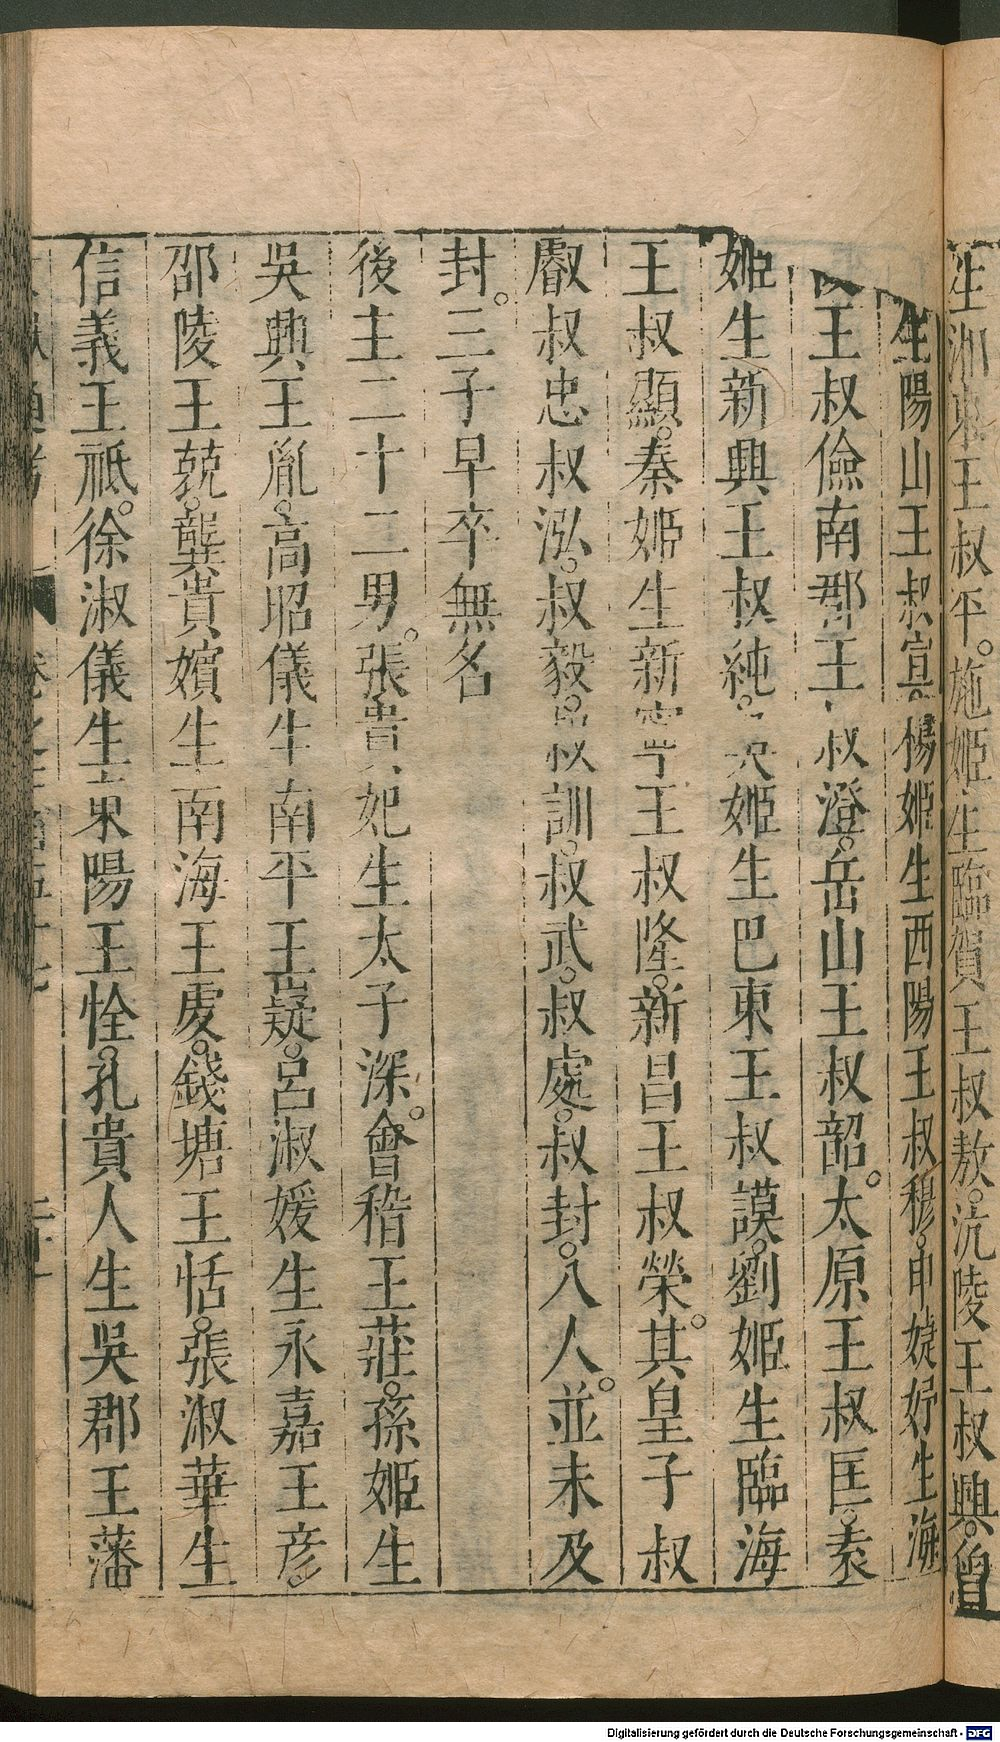 生湘東王叔平。施姬生臨賀王叔敖。沅陵王叔興。曾
生陽山王叔宣。楊姬生西陽王叔穆。申婕妤生海
王叔儉南郡王叔澄。岳山王叔韶。太原王叔匡。袁
姬生新興王叔純。吳姬生巴東王叔謨。劉姬生臨海
王叔顯。秦姬生新寧王叔隆。新昌王叔榮。其皇子叔
叡叔忠叔泓。叔毅。叔訓。叔武。叔處。叔封。八人。並未及
封。三子早卒無名
後主二十二男。張貴妃生太子深。會稽王莊。孫姬生
吳興王胤。高昭儀生南平王嶷。呂淑媛生永嘉王彥。
邵陵王兢。龔貴嬪生南海王虔。錢塘王恬。張淑華生
信義王祗。徐淑儀生東陽王恮。孔貴人生吳郡王藩
Digitalisierung gefördert durch die Deutsche Forschungsgemeinschaft - DFG